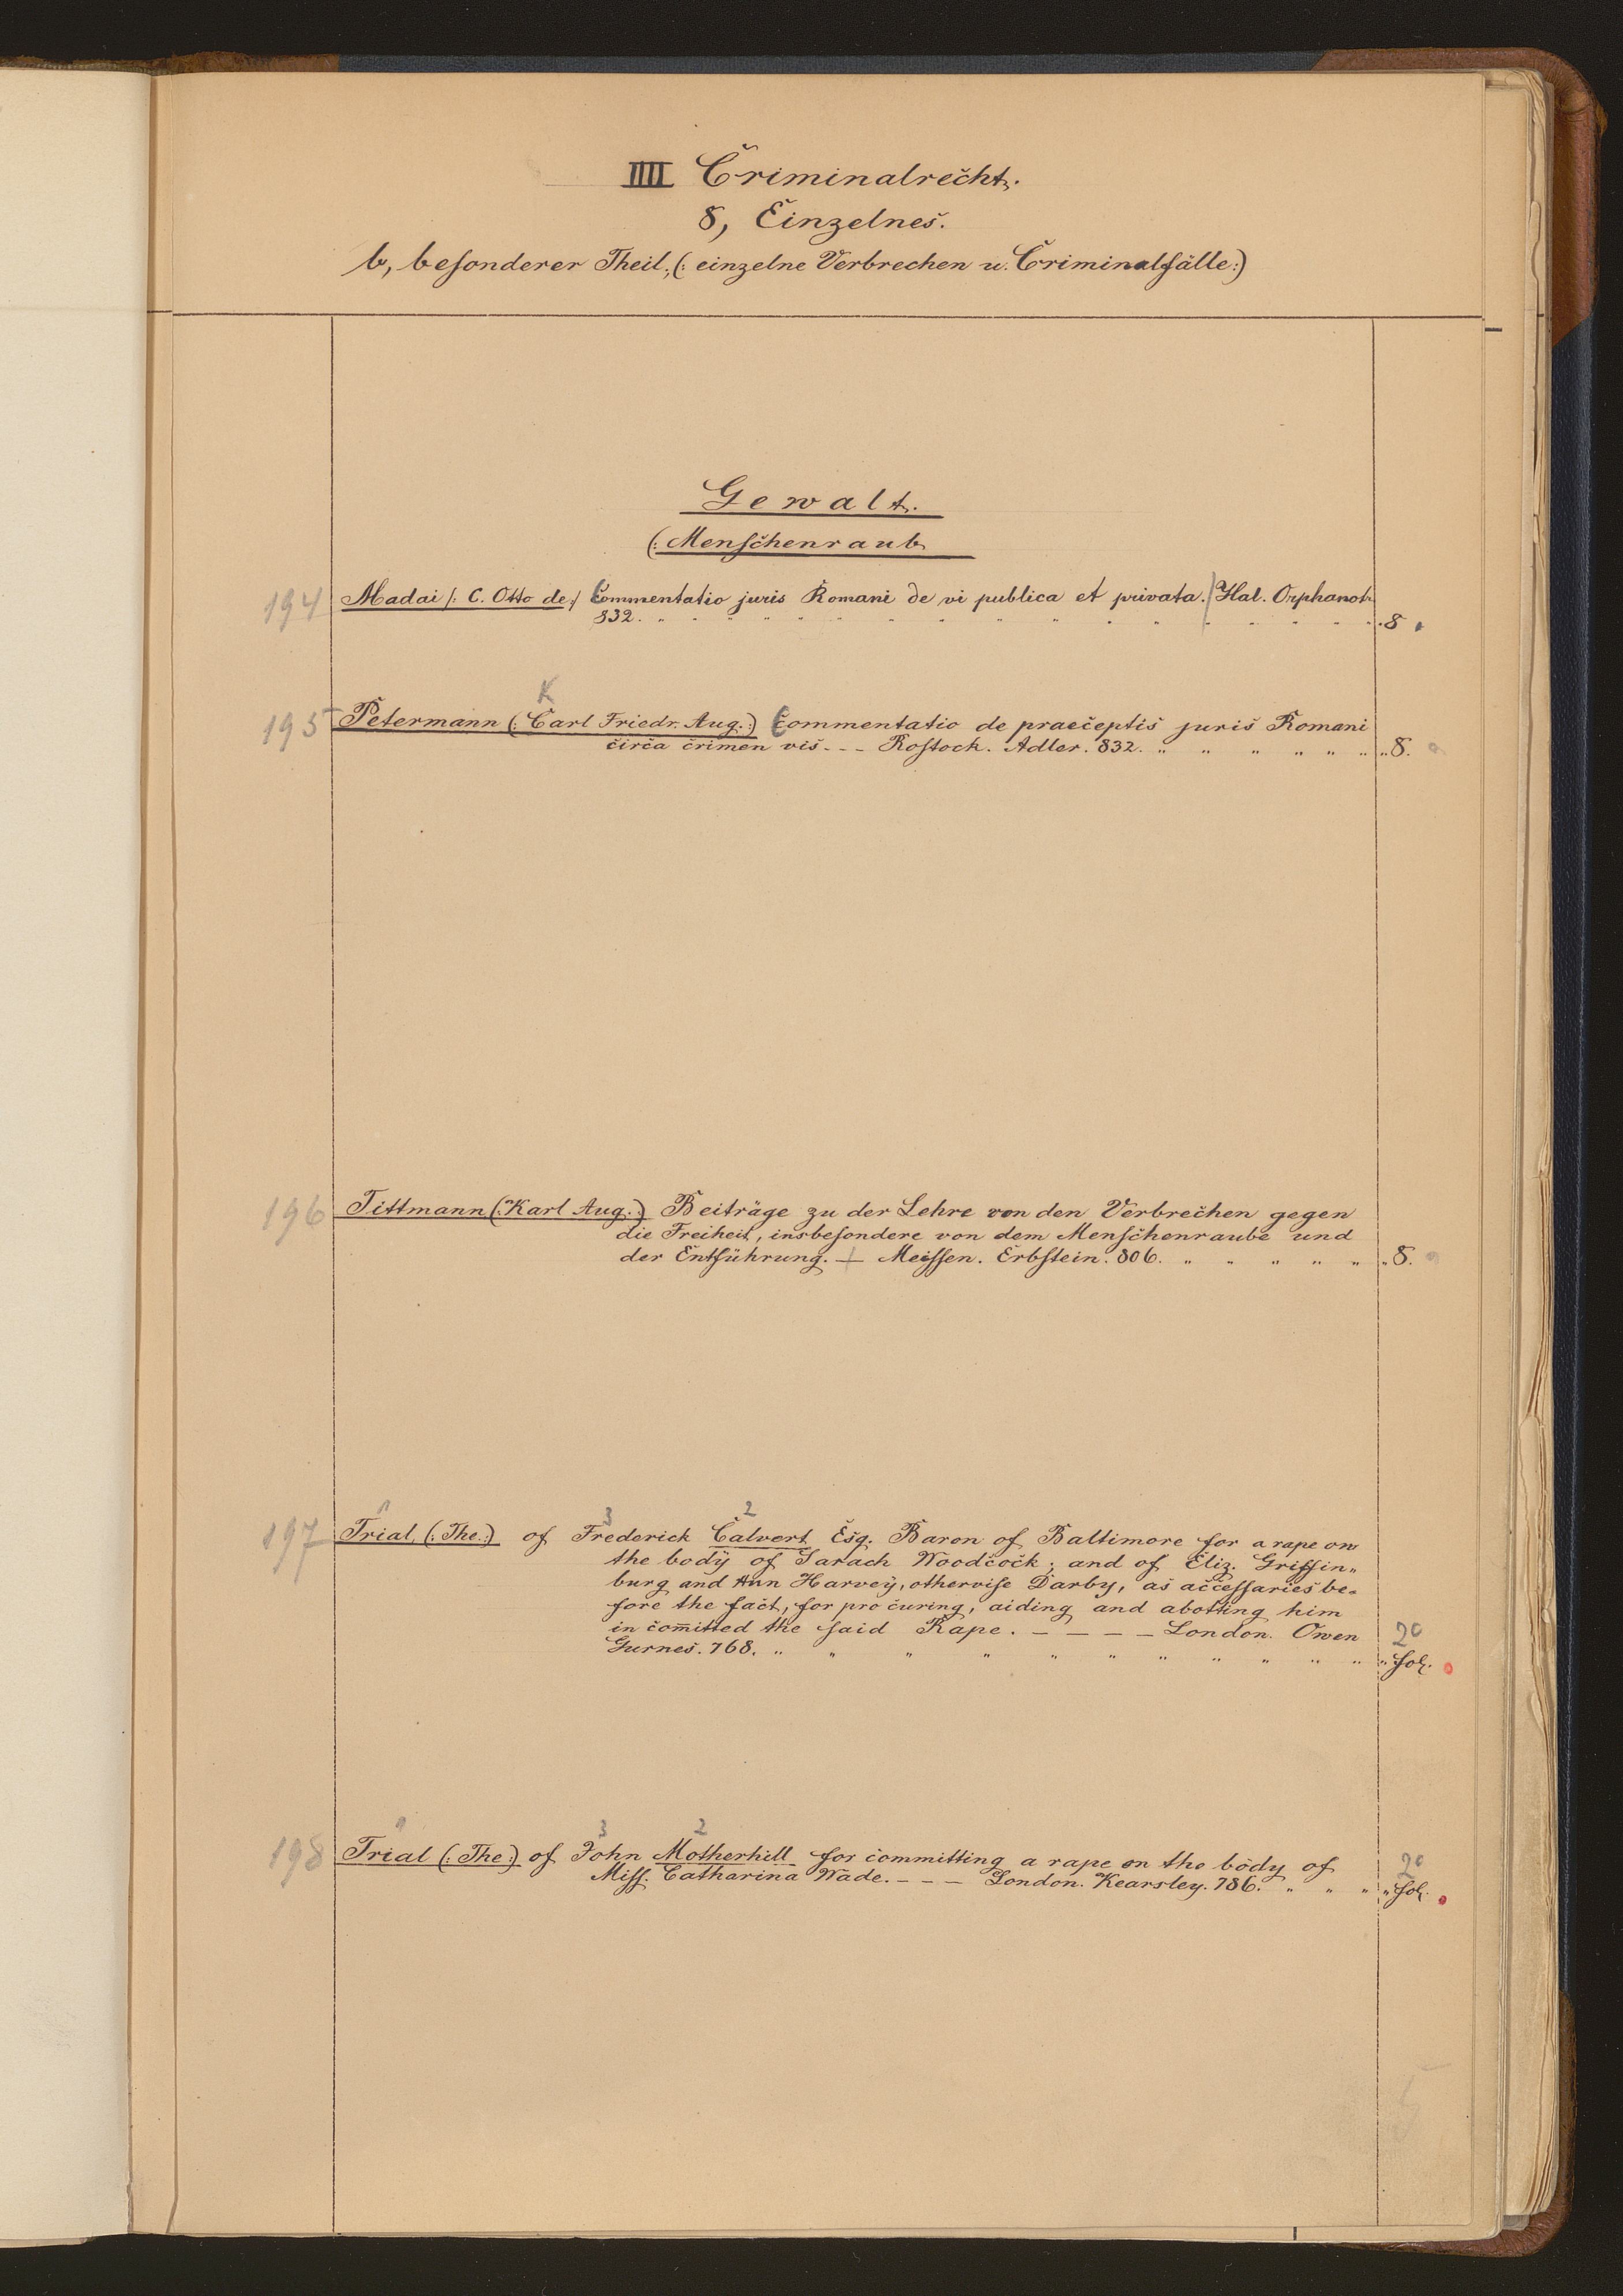 IIII Criminalrecht.
8, Einzelnes.
b, besonderer Theil, (: einzelne Verbrechen u. Criminalfälle:)
Gewalt.
(: Menschenraub
194 Madai /: C. Otto de:/ Commentatio juris Romani de vi publica et privata. Hal. Orphanotr.
832. " " " " " " " " " " " " " " " " 8
K
195 Petermann (: Carl Friedr. Aug.:) Commentatio de praeceptis juris Romani
circa crimen vis. - - - Rostock. Adler. 832. " " " " " " " 8.
196 Tittmann (: Karl Aug.:) Beiträge zu der Lehre von den Verbrechen gegen
die Freiheit, insbesondere von dem Menschenraube und
der Entführung. + Meissen. Erbstein. 806. " " " " " " 8.
1 3 2
197 Trial, (: The.:) of Frederick Calvert Esq. Baron of Baltimore for a rape on
the body of Sarach Woodcock; and of Eliz. Griffin„
burg and Ann Harvey, othervise Darby, as accessaries be=
fore the fact, for pro curing, aiding and abotting him
in com̄itted the said Rape. - - - - London. Owen 20
Gurnes. 768. " " " " " " " " " " " " fol.
1 3 2
198 Trial (: The:) of John Motherhill for committing a rape on the body of 20
Miss. Catharina Wade. - - - London. Kearsley. 786. " " " " fol.